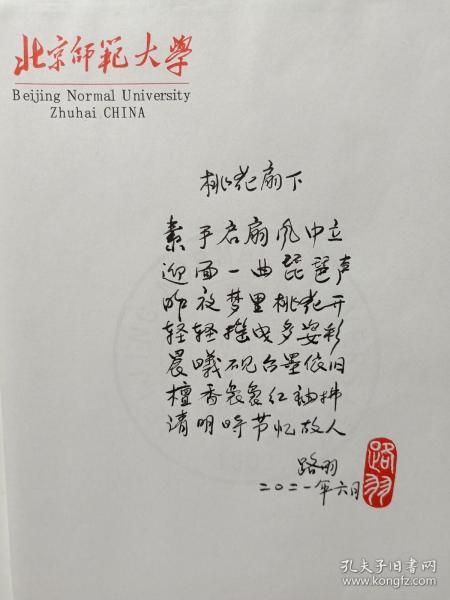 北京师范大学
Beijing Normal University
Zhuhai CHINA
桃花扇下
素手启扇风中立
迎面一曲琵琶声
昨夜梦里桃花开
轻轻摇曳多姿彩
晨曦砚台墨依旧
檀香袅袅红袖拂
清明时节忆故人
路羽
二〇二一年六月
路羽
孔夫子旧书网
www.kongfz.com